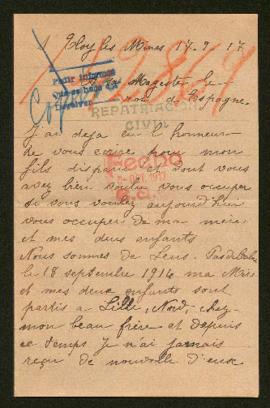 St Eloy les Mines 17-9-17
A sa Majesté le
roi d'Espagne
REPATRIACIÓN
CIVIL
J'ai déjà eu l'honneur
de vous écrire pour mon
fils disparu et dont vous
avez bien voulu vous occuper
si vous vouliez aujourd'hui
vous occuper de ma mère
et mes deux enfants
Nous sommes de Lens. Pas de Calais
le 18 septembre 1914 ma Mère
et mes deux enfants sont
partis a Lille, Nord, chez
mon beau frère et depuis
ce temps Je n'ai jamais
reçu de nouvelle d'eux